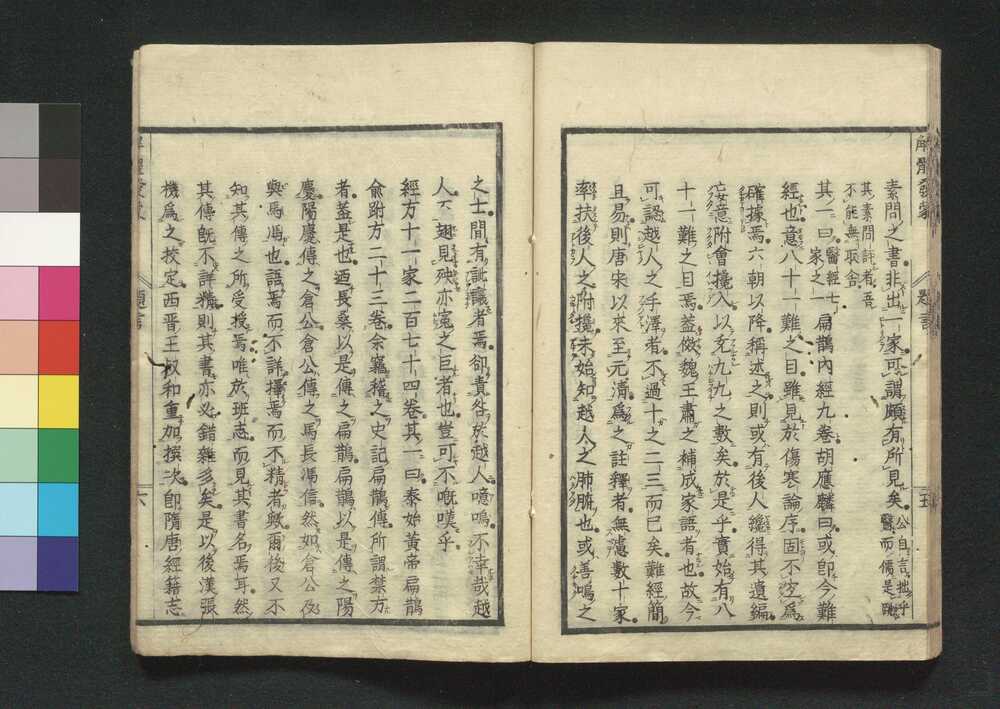 素問之書非出一家可謂頗有所見矣公自言拙乎
醫而備是
其素問評者吾
不能無取舍
其一曰醫經七
家之一扁鵲內經九卷胡應麟曰或卽今難
經也意八十一難之目雖見於傷寒論序固不空爲
確據焉六朝以降稱述之則或有後人纔得其遺編
妄意附會攙入以充九九之數矣於是乎賁始有八
十一難之目焉蓋傚魏王肅之補成家語者也故今
可認越人之手澤者不過十之二三而已矣難經簡
且易則唐宋以來至元淸爲之註釋者無慮數十家
率扶後人之附攙未始知越人之肺腑也或善鳴之
解體發蒙
題言
五
之士間有訿讓者焉卻責咎於越人噫嗚不幸哉越
人一翅見殃亦寃之巨者也豈可不嘅嘆乎
經方十一家二百七十四卷其一曰泰始黃帝扁鵲
兪跗方二十三卷余竊稽之史記扁鵲傳所謂禁方
者蓋是也迺長桑以是傳之扁鵲扁鵲以是傳之陽
慶陽慶傳之倉公倉公傳之馬長馮信然如倉公及
與焉也語焉而不詳擇焉而不精者歟爾後又不
知其傳之所受授焉唯於班志而見其書名焉耳然
其傳旣不詳精則其書亦必錯雜多矣是以後漢張
機爲之校定西晋王叔和重加撰次卽隋唐經籍志
題言
六